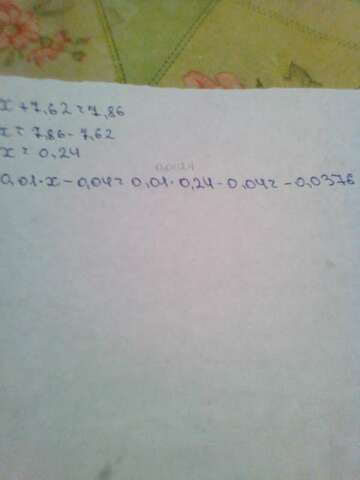 x + 7,62 = 7,86
x = 7,86 - 7,62
x = 0,24
0,0024
0,01·x - 0,04 = 0,01·0,24 - 0,04 = -0,0376